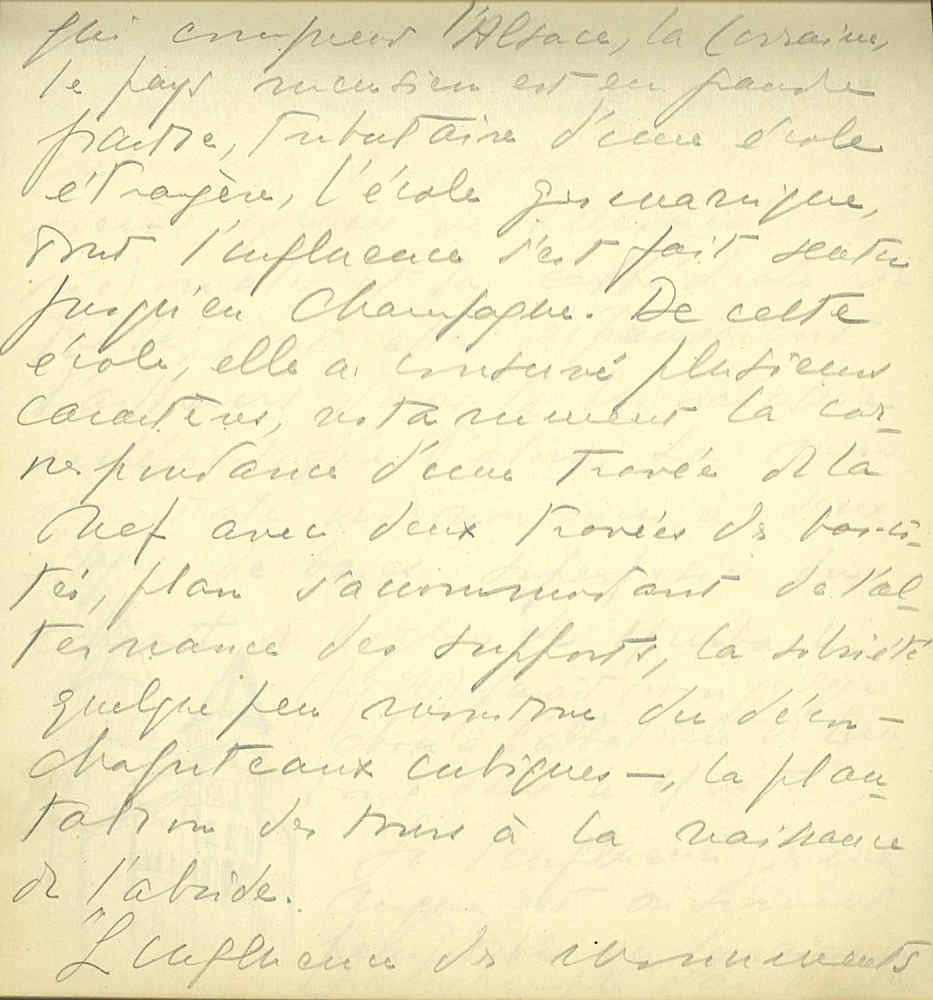 qui comprend l'Alsace, la Lorraine,
le pays messien est en grande
partie, tributaire d'une école
étrangère, l'école germanique,
dont l'influence s'est fait sentir
jusqu'en Champagne. De cette
école, elle a conservé plusieurs
caractères, notamment la cor-
respondance d'une travée de la
nef avec deux travées de bas-cô-
tés, plan s'accommodant de l'al-
ternance des supports, la sobriété
quelque peu monotone du décor -
chapiteaux cubiques -, la plan-
tation des tours à la naissance
de l'abside.
"L'influence des monuments